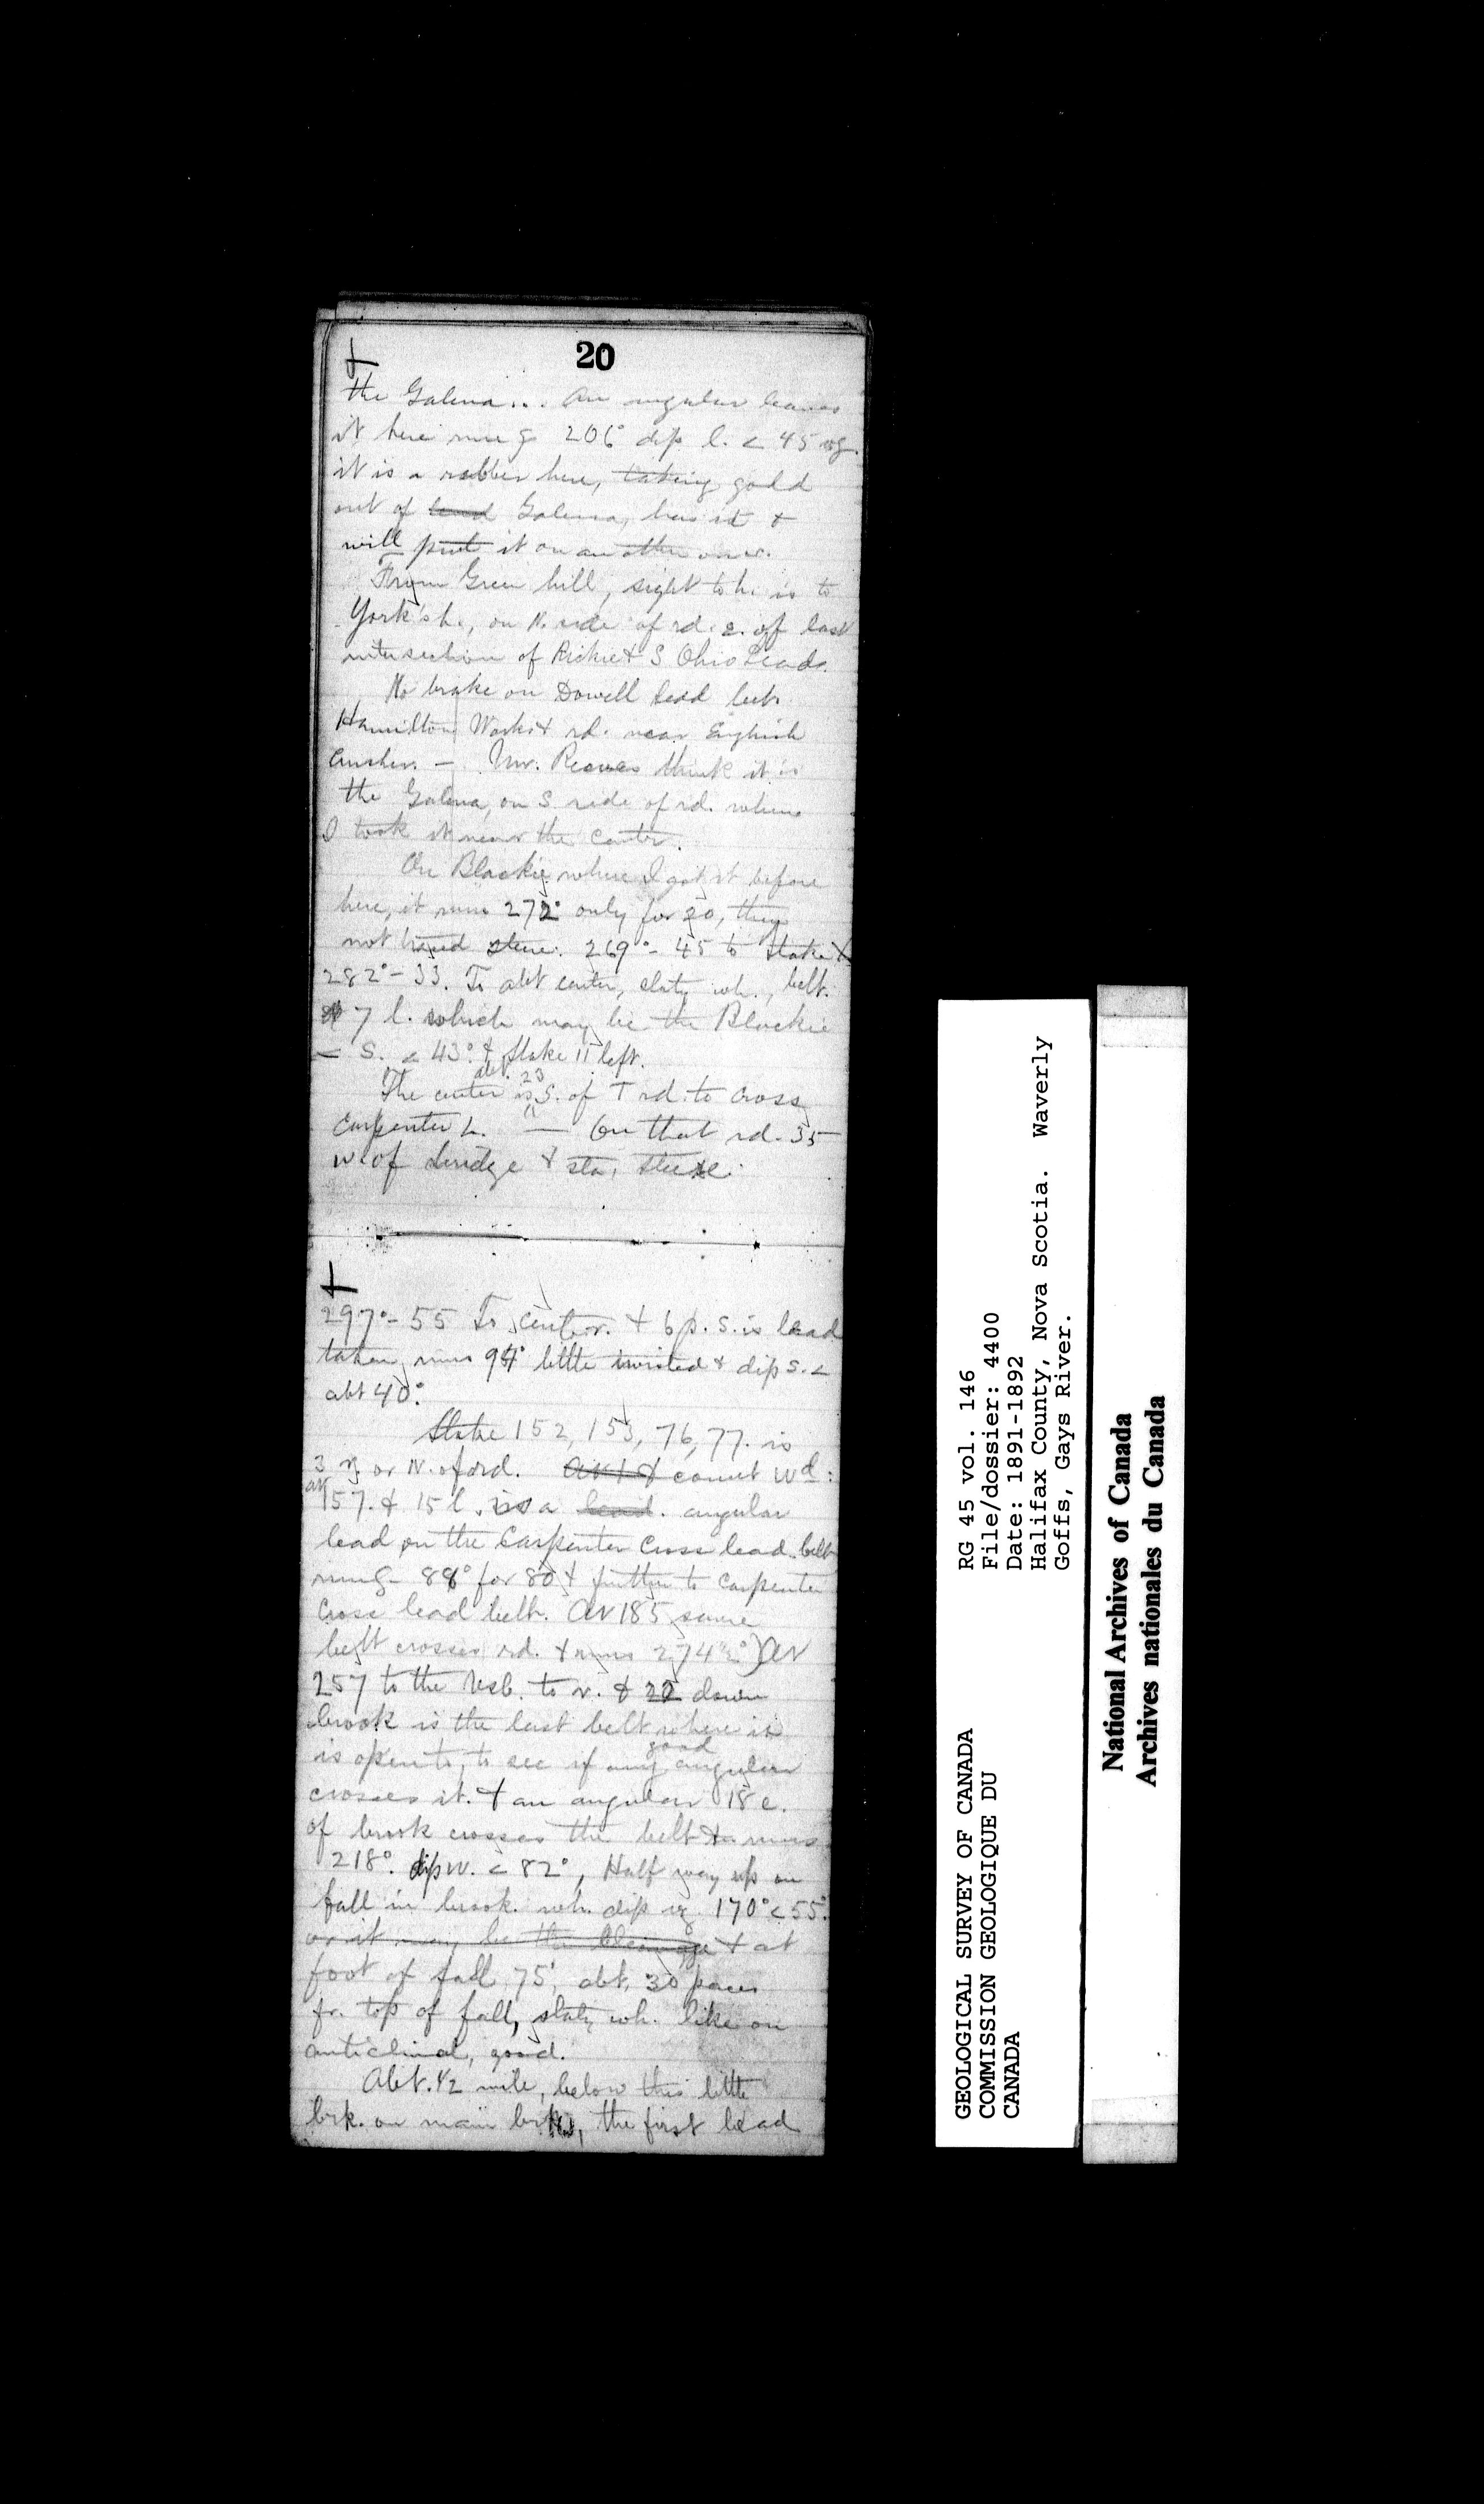 20
the Galena... An angular leaves
it here runs 206° dip l. < 45 
it is a robber here, taking gold
out of lead Galena, has it &
will put it on an other over.
From Green hill, sight to h. is to
York's h., on N. side of rd. e. of last
intersection of Rickie & S Ohio Leads.
No brake on Dowell lead bet.
Hamilton Works & rd. near English
Crusher. — Mr. Reeves think it is
the Galena, on S side of rd. where
I took it near the center.
On Blackie where I got it before
here, it runs 272° only for 20, then
not traced 269° - 45 to Stake &
282° - 33. To abt center, slaty wh., belt.
7 l. which may be the Blackie
— S. < 43°. & Stake 11 left.
The center is abt. 23 S. of T rd. to Cross
Carpenter L. — On that rd. 35
w. of bridge & sta,
297° - 55 To center. & 6 p. S. is lead
taken, runs 94° little twisted & dip S. <
abt 40°.
Stake 152, 153, 76, 77. is
3 r. or N. of rd. At 1 & comet Wd:
at 157. & 15 l. is a lead. angular
lead on the Carpenter Cross lead belt
rung 88° for 80 & further to Carpenter
Cross lead belt. At 185 same
belt crosses rd. & runs 274½°) At
257 to the to r. & 22 down
brook is the last belt where it
is open to, to see if any good angular
crosses it. & an angular 18 e.
of brook crosses the belt & runs
218°. dip W. < 82°, Half way up on
fall in brook. wh. dip 170° < 55°.
or it may be the cleavage & at
foot of fall 75°, abt. 30 paces
fr. top of fall, slaty wh. like on
anticlinal, good.
Abt. 1/2 mile, below this little
brk. on main brk., the first lead
GEOLOGICAL SURVEY OF CANADA
COMMISSION GEOLOGIQUE DU
CANADA
RG 45 vol. 146
File/dossier: 4400
Date: 1891-1892
Halifax County, Nova Scotia. Waverly
Goffs, Gays River.
National Archives of Canada
Archives nationales du Canada